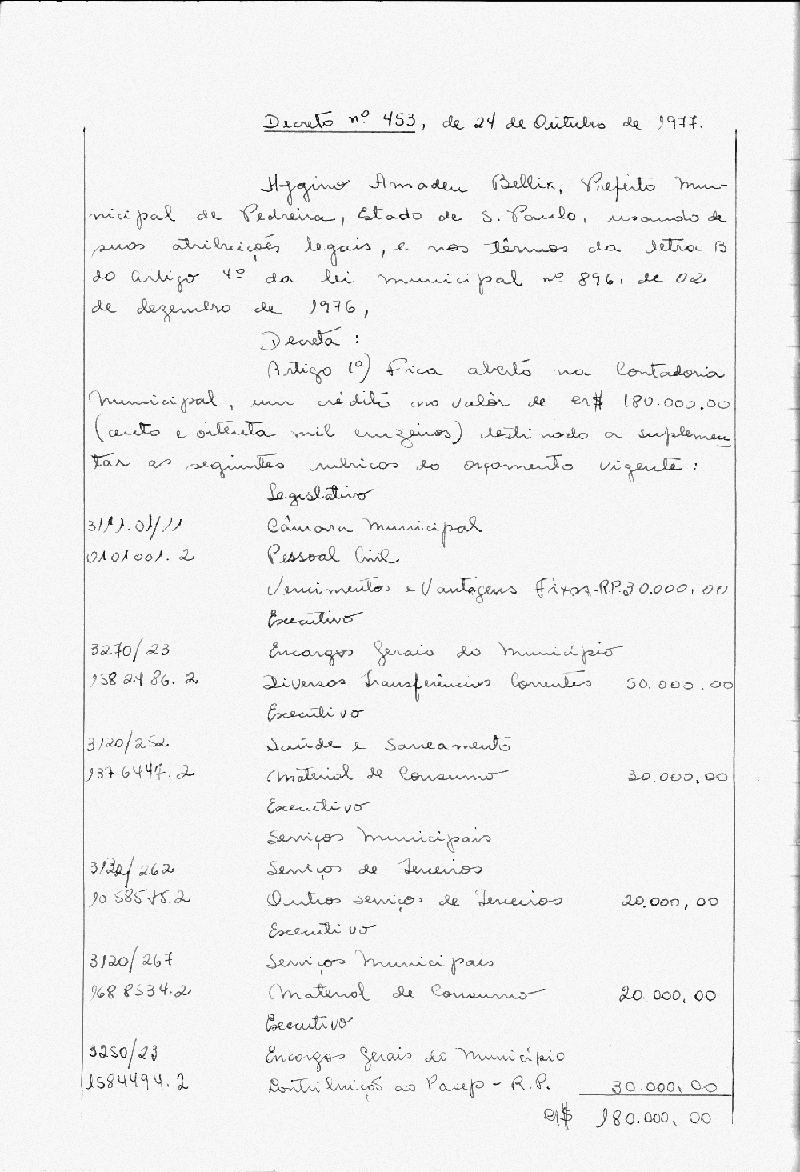 Decreto nº 453, de 24 de Outubro de 1977.
Hygino Amadeu Bellix, Prefeito Mun-
nicipal de Pedreira, Estado de S. Paulo, usando de
suas atribuições legais, e nos têrmos da letra B
do Artigo 4º da lei municipal nº 896, de 02
de dezembro de 1976,
Decreta:
Artigo 1º) Fica aberto na Contadoria
Municipal, um crédito no valôr de CR$ 180.000,00
(cento e oitenta mil cruzeiros) destinado a suplemen
tar as seguintes rubricas do orçamento vigente:
Legislativo
3111.01/11 Câmara Municipal
0101001.2 Pessoal Civil
Vencimentos e Vantagens Fixas-R.P. 30.000,00
Executivo
3270/23 Encargos Gerais do Município
1582486.2 Diversas Transferências Correntes 50.000,00
Executivo
3120/252 Saúde e Saneamento
1376447.2 Material de Consumo 30.000,00
Executivo
Serviços Municipais
3132/262 Serviços de Terceiros
1058575.2 Outros serviços de Terceiros 20.000,00
Executivo
3120/267 Serviços Municipais
1688534.2 Material de Consumo 20.000,00
Executivo
3250/23 Encargos Gerais do Município
1584494.2 Contribuição ao Pasep - R.P. 30.000,00
CR$ 180.000,00